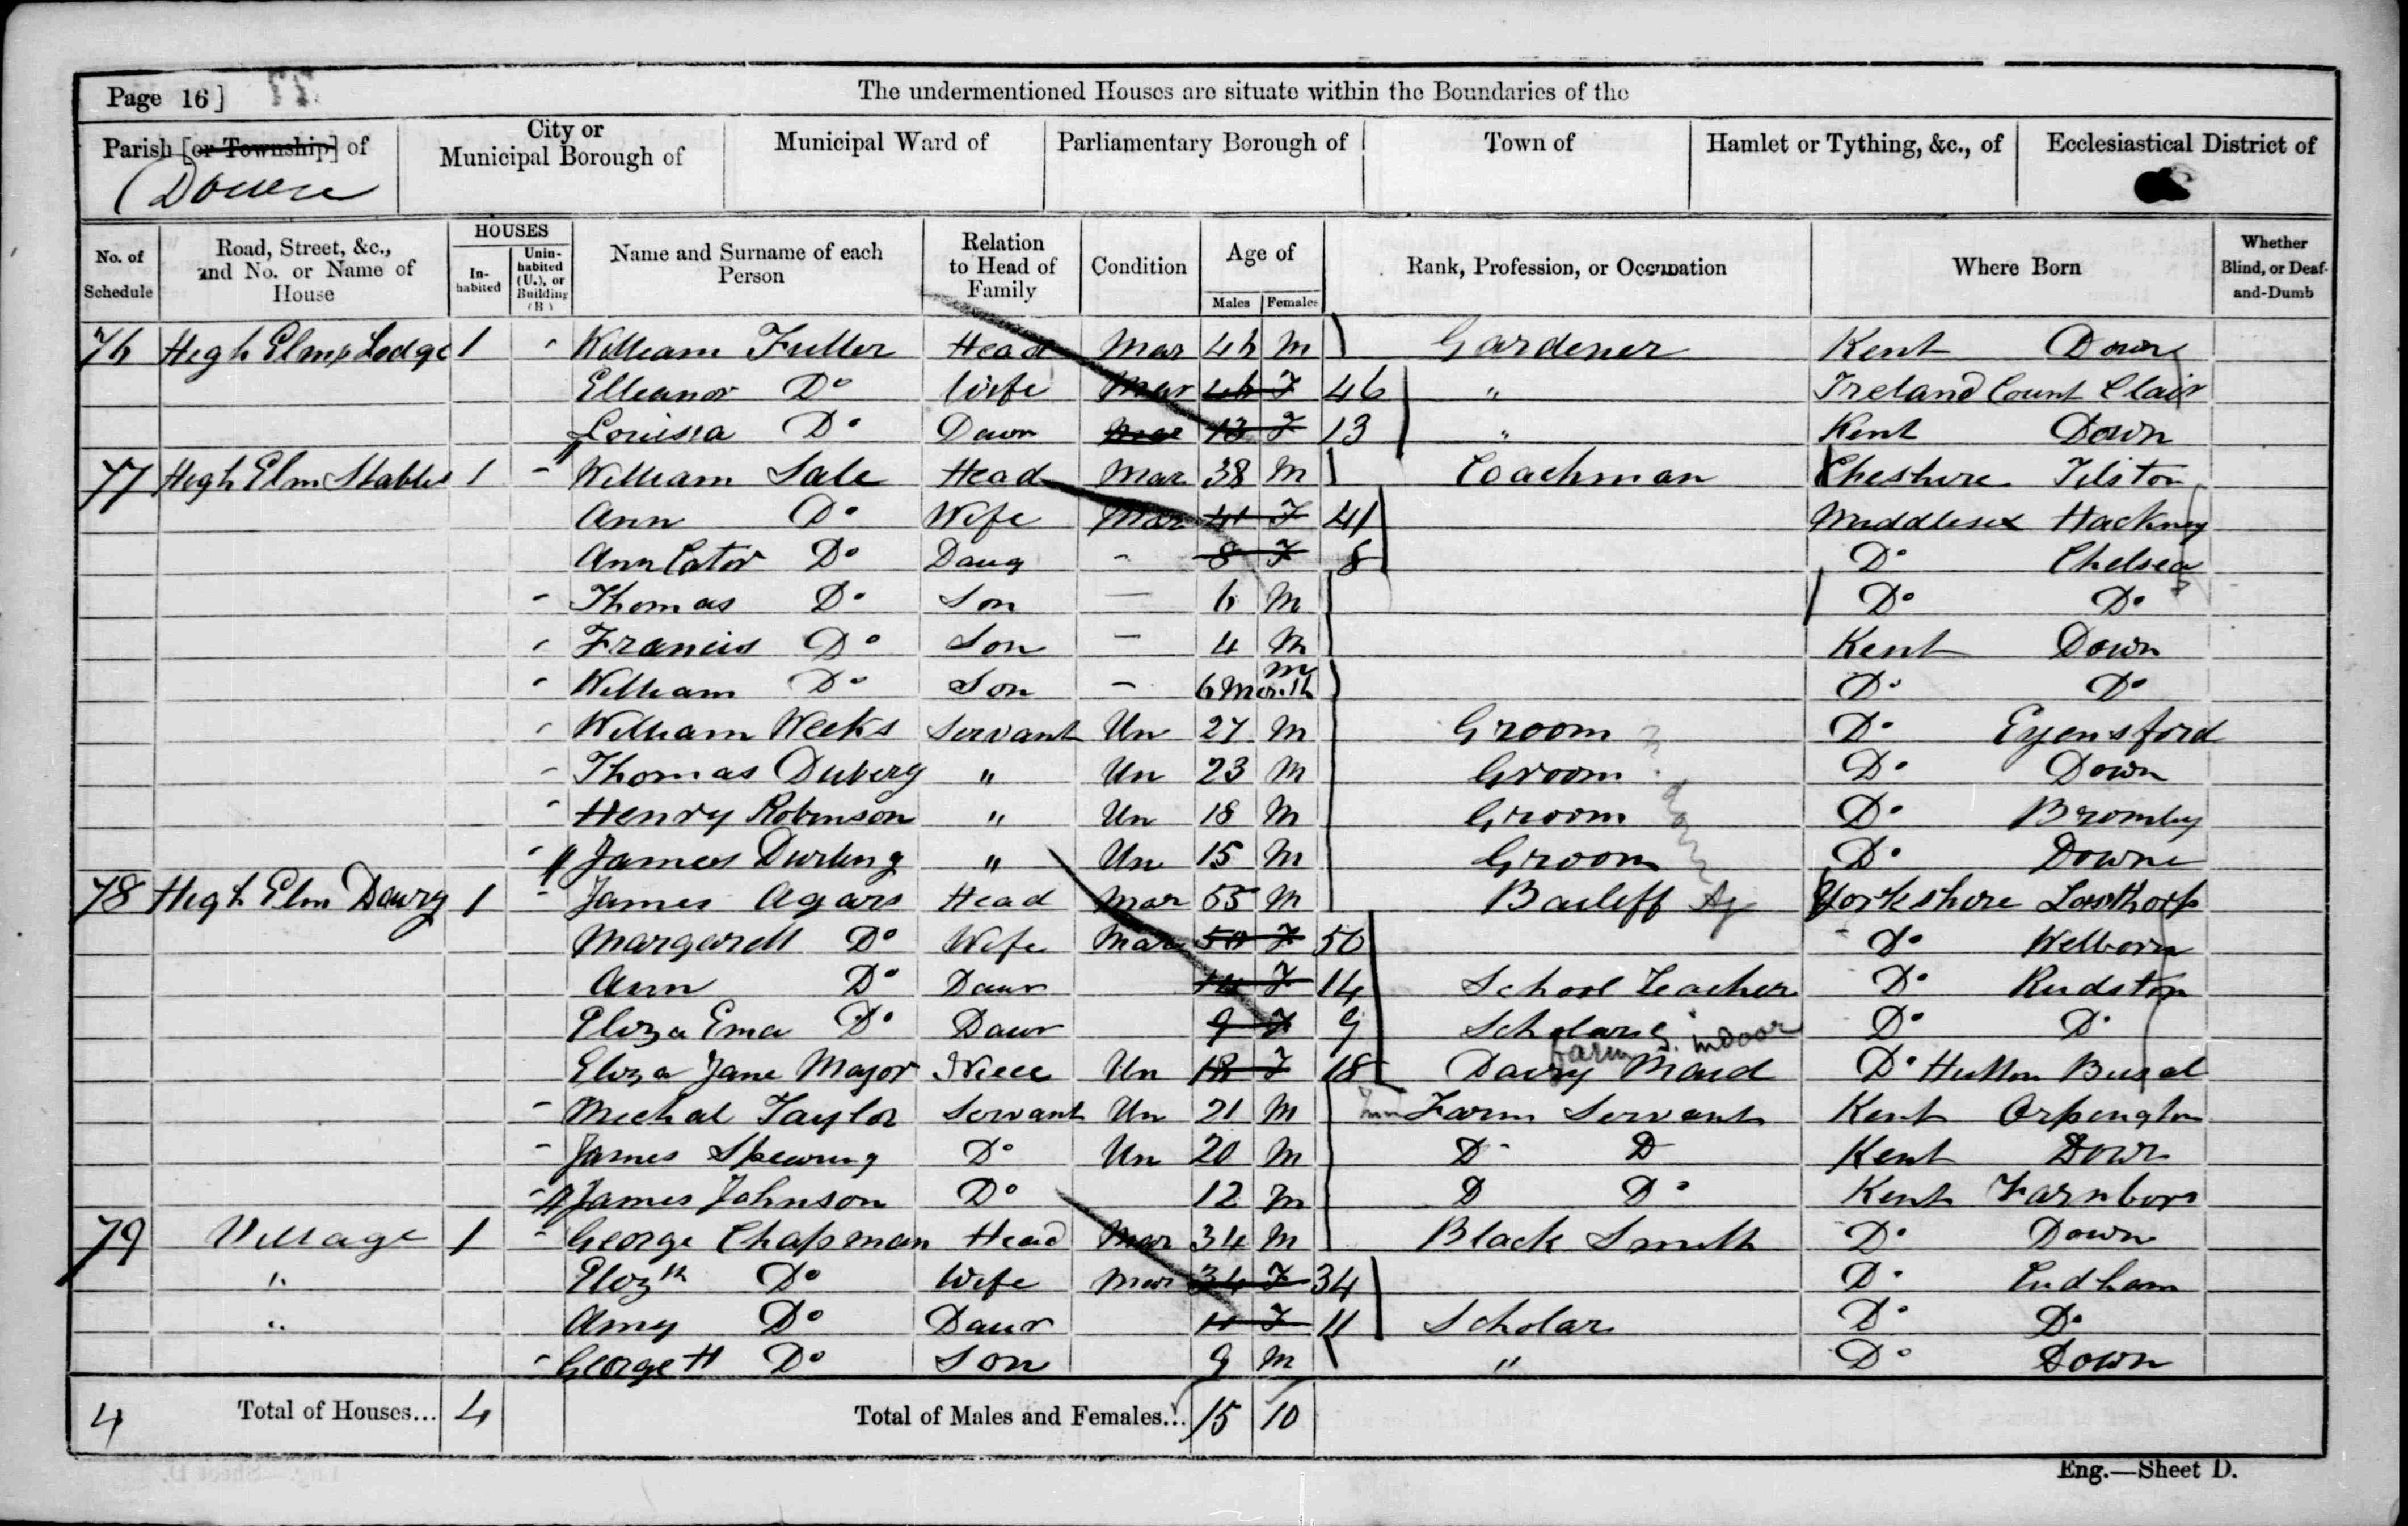 Page 16] The undermentioned Houses are situate within the Boundaries of the
Parish [or Township] of City or Municipal Borough of Municipal Ward of Parliamentary Borough of Town of Hamlet or Tything, &c., of Ecclesiastical District of
Downe
No. of Schedule Road, Street, &c., and No. or Name of House HOUSES Inhabited Uninhabited (U.), or Building (B) Name and Surname of each Person Relation to Head of Family Condition Age of Males Females Rank, Profession, or Occupation Where Born Whether Blind, or Deaf-and-Dumb
76 High Elms Lodge 1 William Fuller Head Mar 46 M Gardener Kent Down
Elleanor Do Wife Mar 46 F 46 " Ireland Count Clair
Louissa Do Dawr 13 F 13 " Kent Down
77 High Elm Stables 1 William Sale Head Mar 38 M Coachman Cheshire Tilston
Ann Do Wife Mar 41 F 41 Middlesex Hackney
Ann Cator Do Daug - 8 F 8 Do Chelsea
Thomas Do Son - 6 M Do Do
Francis Do Son - 4 M Kent Down
William Do Son - 6 Month M Do Do
William Weeks Servant Un 27 M Groom Do Eyensford
Thomas Duberg " Un 23 M Groom Do Down
Henry Robinson " Un 18 M Groom Do Bromley
James Durling " Un 15 M Groom Do Downe
78 High Elm Dairy 1 James Agars Head Mar 55 M Bailiff Ag Yorkshire
Margarett Do Wife Mar 50 F 50 Do Welborn
Ann Do Daur 14 F 14 School Teacher Do Rudston
Eliza Ema Do Dawr 9 F 9 Scholar Do Do
Farm S. indoor
Eliza Jane Major Niece Un 18 F 18 Dairy Maid Do Hutton Busal
Michal Taylor Servant Un 21 M Farm Servant Kent Orpington
James Skewing Do Un 20 M D D Kent Down
James Johnson Do 12 M D Do Kent Farnboro
79 Village 1 George Chapman Head Mar 34 M Black Smith Do Down
" Elizth Do Wife Mar 34 F 34 Do Cudham
" Amy Do Daur 11 F 11 Scholar Do Do
George H Do Son 9 M " Do Down
4 Total of Houses... 4 Total of Males and Females... 15 10
Eng.—Sheet D.